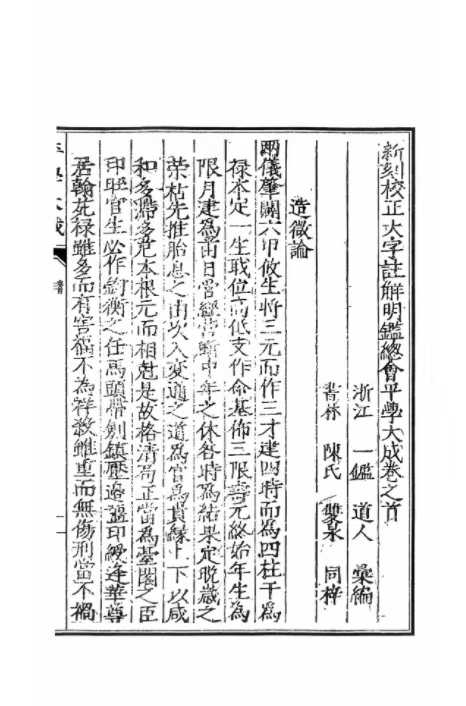 新刻校正大字註解明鑑總會平學大成卷之首
浙江 一鑑 道人 彙編
書林 陳氏 㷛泉 同梓
造微論
兩儀肇闢六甲攸生將三元而作三才建四時而為四柱干為
祿本定一生職位高低支作命基佈三限壽元終始年生為
限月建為 日 經營 中年之休咎時為結果定晚歲之
榮枯先推胎息之由次入变通之道為官為貴緣上下以咸
和多滯多屯本根元而相尅是故格清局正當為臺閣之臣
印旺官生必作鈞衡之任馬頭帶劍鎮壓邉疆印綬逢華尊
居翰苑禄雖多而有害 不為祥殺雖重而無傷刑當不禍